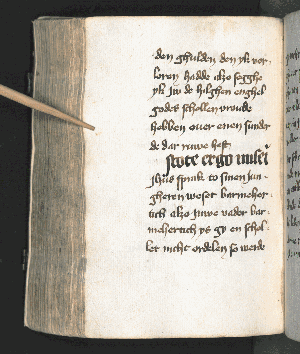 den ghulden den yk vor
loren hadde also segghe
yk iw de hilghen enghel
godes schollen vroude
hebben ouer enen sunder
de dar ruwe heft
Stote ergo miseri
Jhus sprak to sinen jun
gheren weset barmeher
tich also juwe vader bar
mehertich ys gy en schol
let nicht ordelen so werde